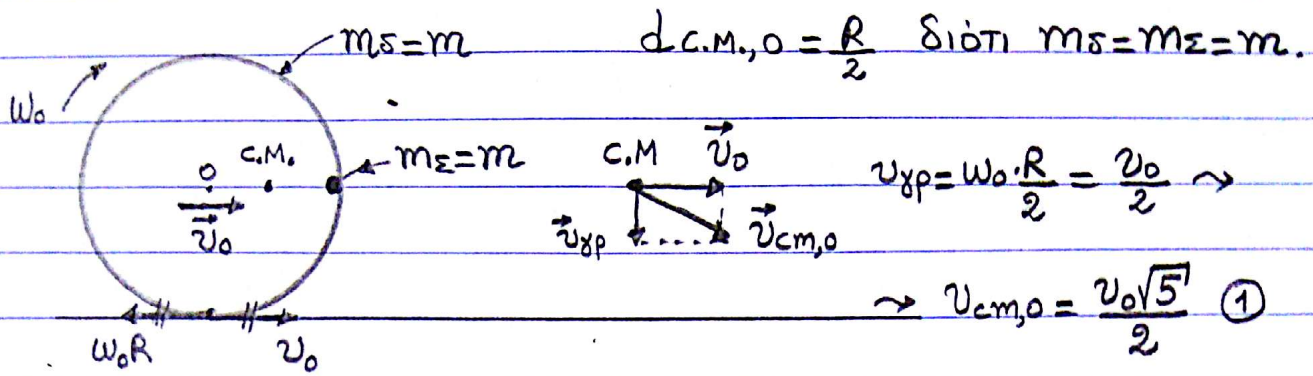 mδ=m
d c.m.,0 = R/2 διότι mδ=mΣ=m.
ω₀
O
C.M.
mΣ=m
v⃗₀
C.M
v⃗₀
v⃗γρ
v⃗cm,0
vγρ=ω₀·R/2 = v₀/2 ⤳
⤳ vcm,0 = v₀√5/2 ①
ω₀R
v₀